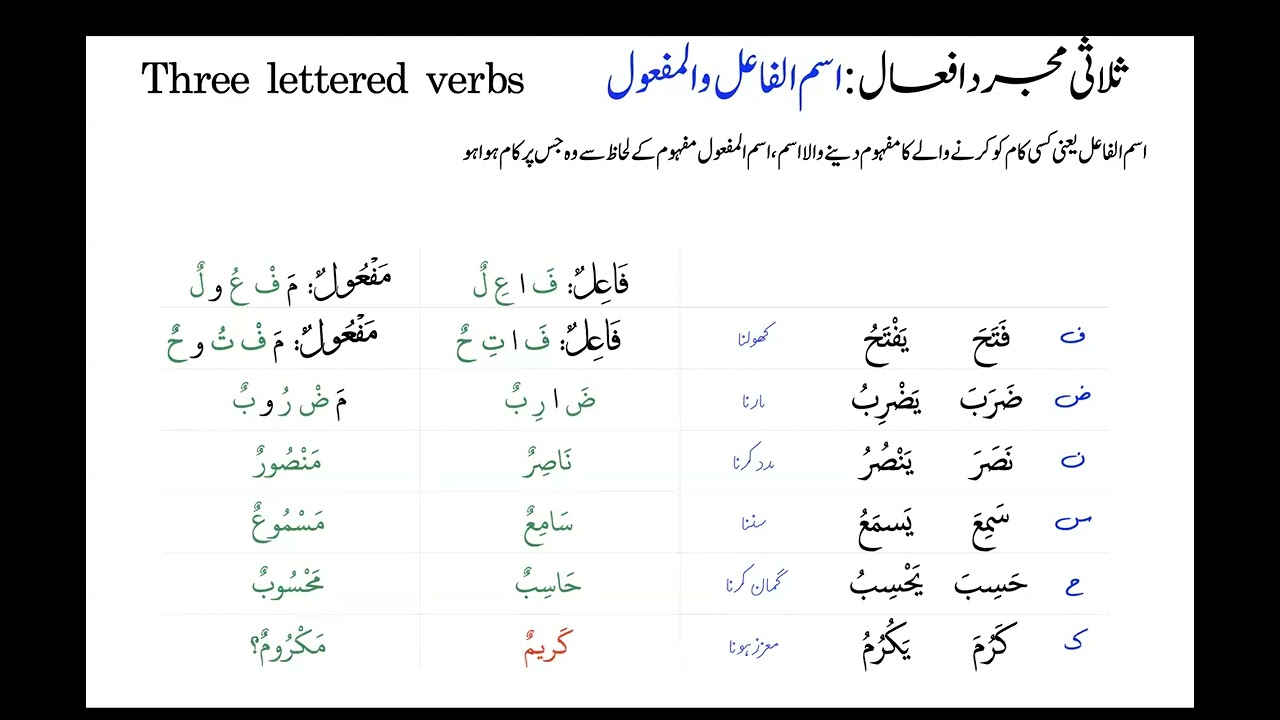 ثلاثی مجرد افعال: اسم الفاعل والمفعول Three lettered verbs
اسم الفاعل یعنی کسی کام کو کرنے والے کا مفہوم دینے والا اسم، اسم المفعول مفہوم کے لحاظ سے وہ جس پر کام ہوا ہو
فَاعِلٌ: فَ ا عِ لٌ مَفْعُولٌ: مَ فْ عُ و لٌ
ف فَتَحَ يَفْتَحُ کھولنا فَاعِلٌ: فَ ا تِ حٌ مَفْعُولٌ: مَ فْ تُ و حٌ
ض ضَرَبَ يَضْرِبُ مارنا ضَ ا رِ بٌ مَ ضْ رُ و بٌ
ن نَصَرَ يَنْصُرُ مدد کرنا نَاصِرٌ مَنْصُورٌ
س سَمِعَ يَسمَعُ سننا سَامِعٌ مَسْمُوعٌ
ح حَسِبَ يَحْسِبُ گمان کرنا حَاسِبٌ مَحْسُوبٌ
ک كَرُمَ يَكْرُمُ معزز ہونا كَرِيمٌ مَكْرُومٌ؟